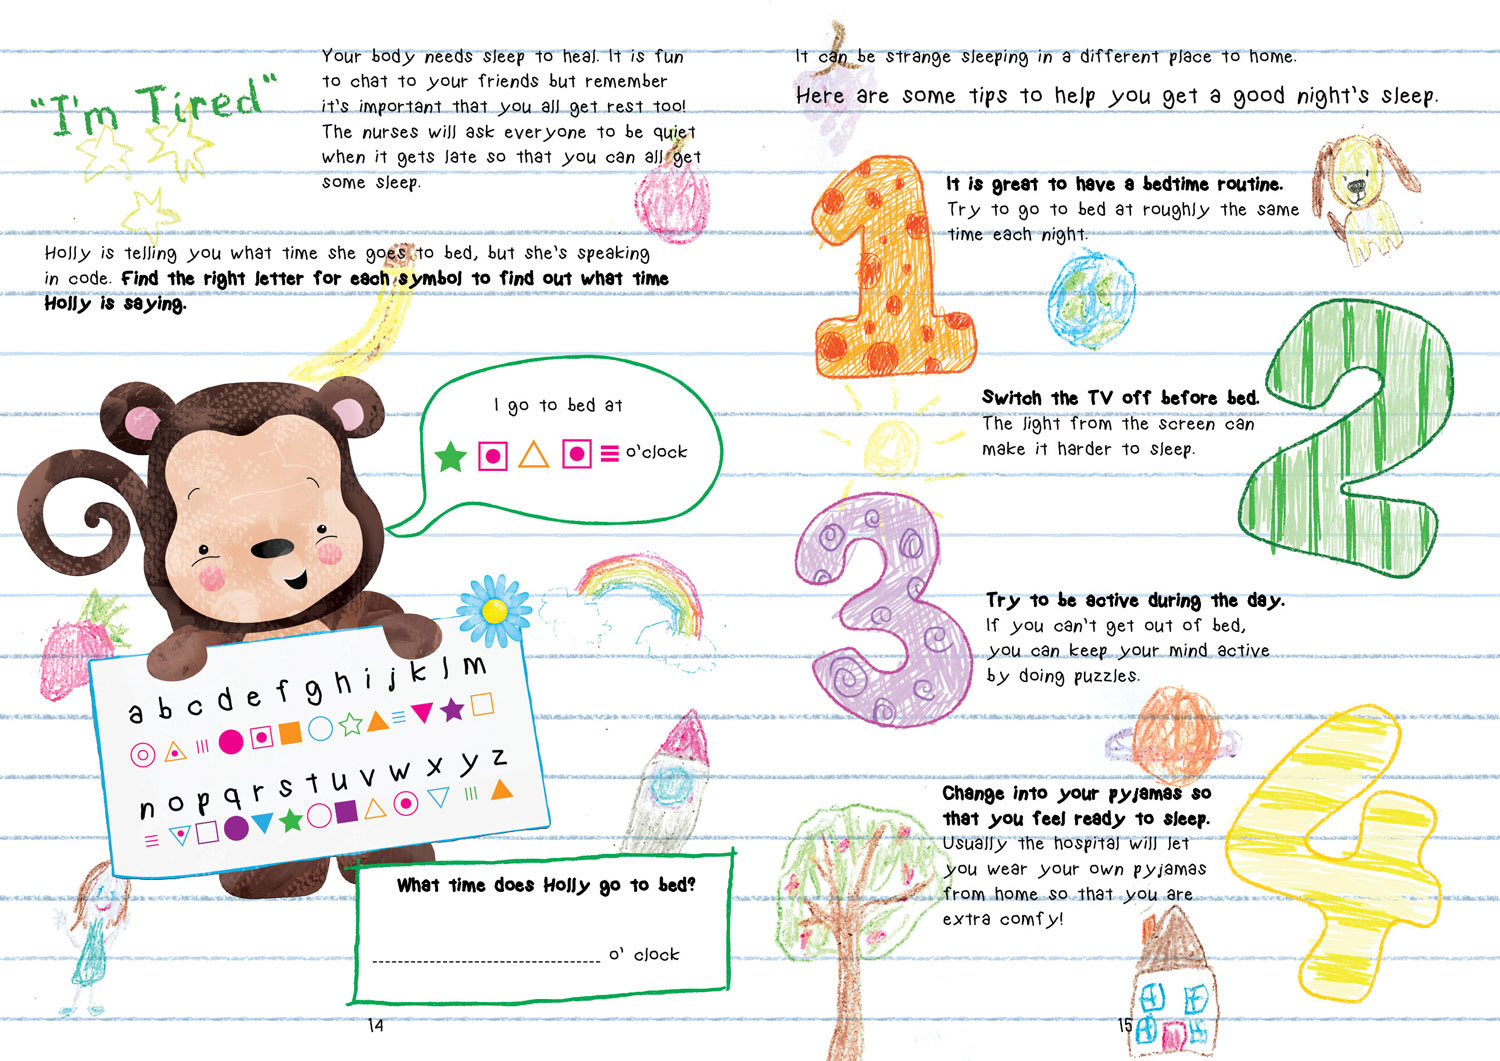 "I'm Tired"
Your body needs sleep to heal. It is fun
to chat to your friends but remember
it's important that you all get rest too!
The nurses will ask everyone to be quiet
when it gets late so that you can all get
some sleep.
Holly is telling you what time she goes to bed, but she's speaking
in code. Find the right letter for each symbol to find out what time
Holly is saying.
I go to bed at
o'clock
a b c d e f g h i j k l m
n o p q r s t u v w x y z
What time does Holly go to bed?
o' clock
14
It can be strange sleeping in a different place to home.
Here are some tips to help you get a good night's sleep.
1
It is great to have a bedtime routine.
Try to go to bed at roughly the same
time each night.
2
Switch the TV off before bed.
The light from the screen can
make it harder to sleep.
3
Try to be active during the day.
If you can't get out of bed,
you can keep your mind active
by doing puzzles.
4
Change into your pyjamas so
that you feel ready to sleep.
Usually the hospital will let
you wear your own pyjamas
from home so that you are
extra comfy!
15